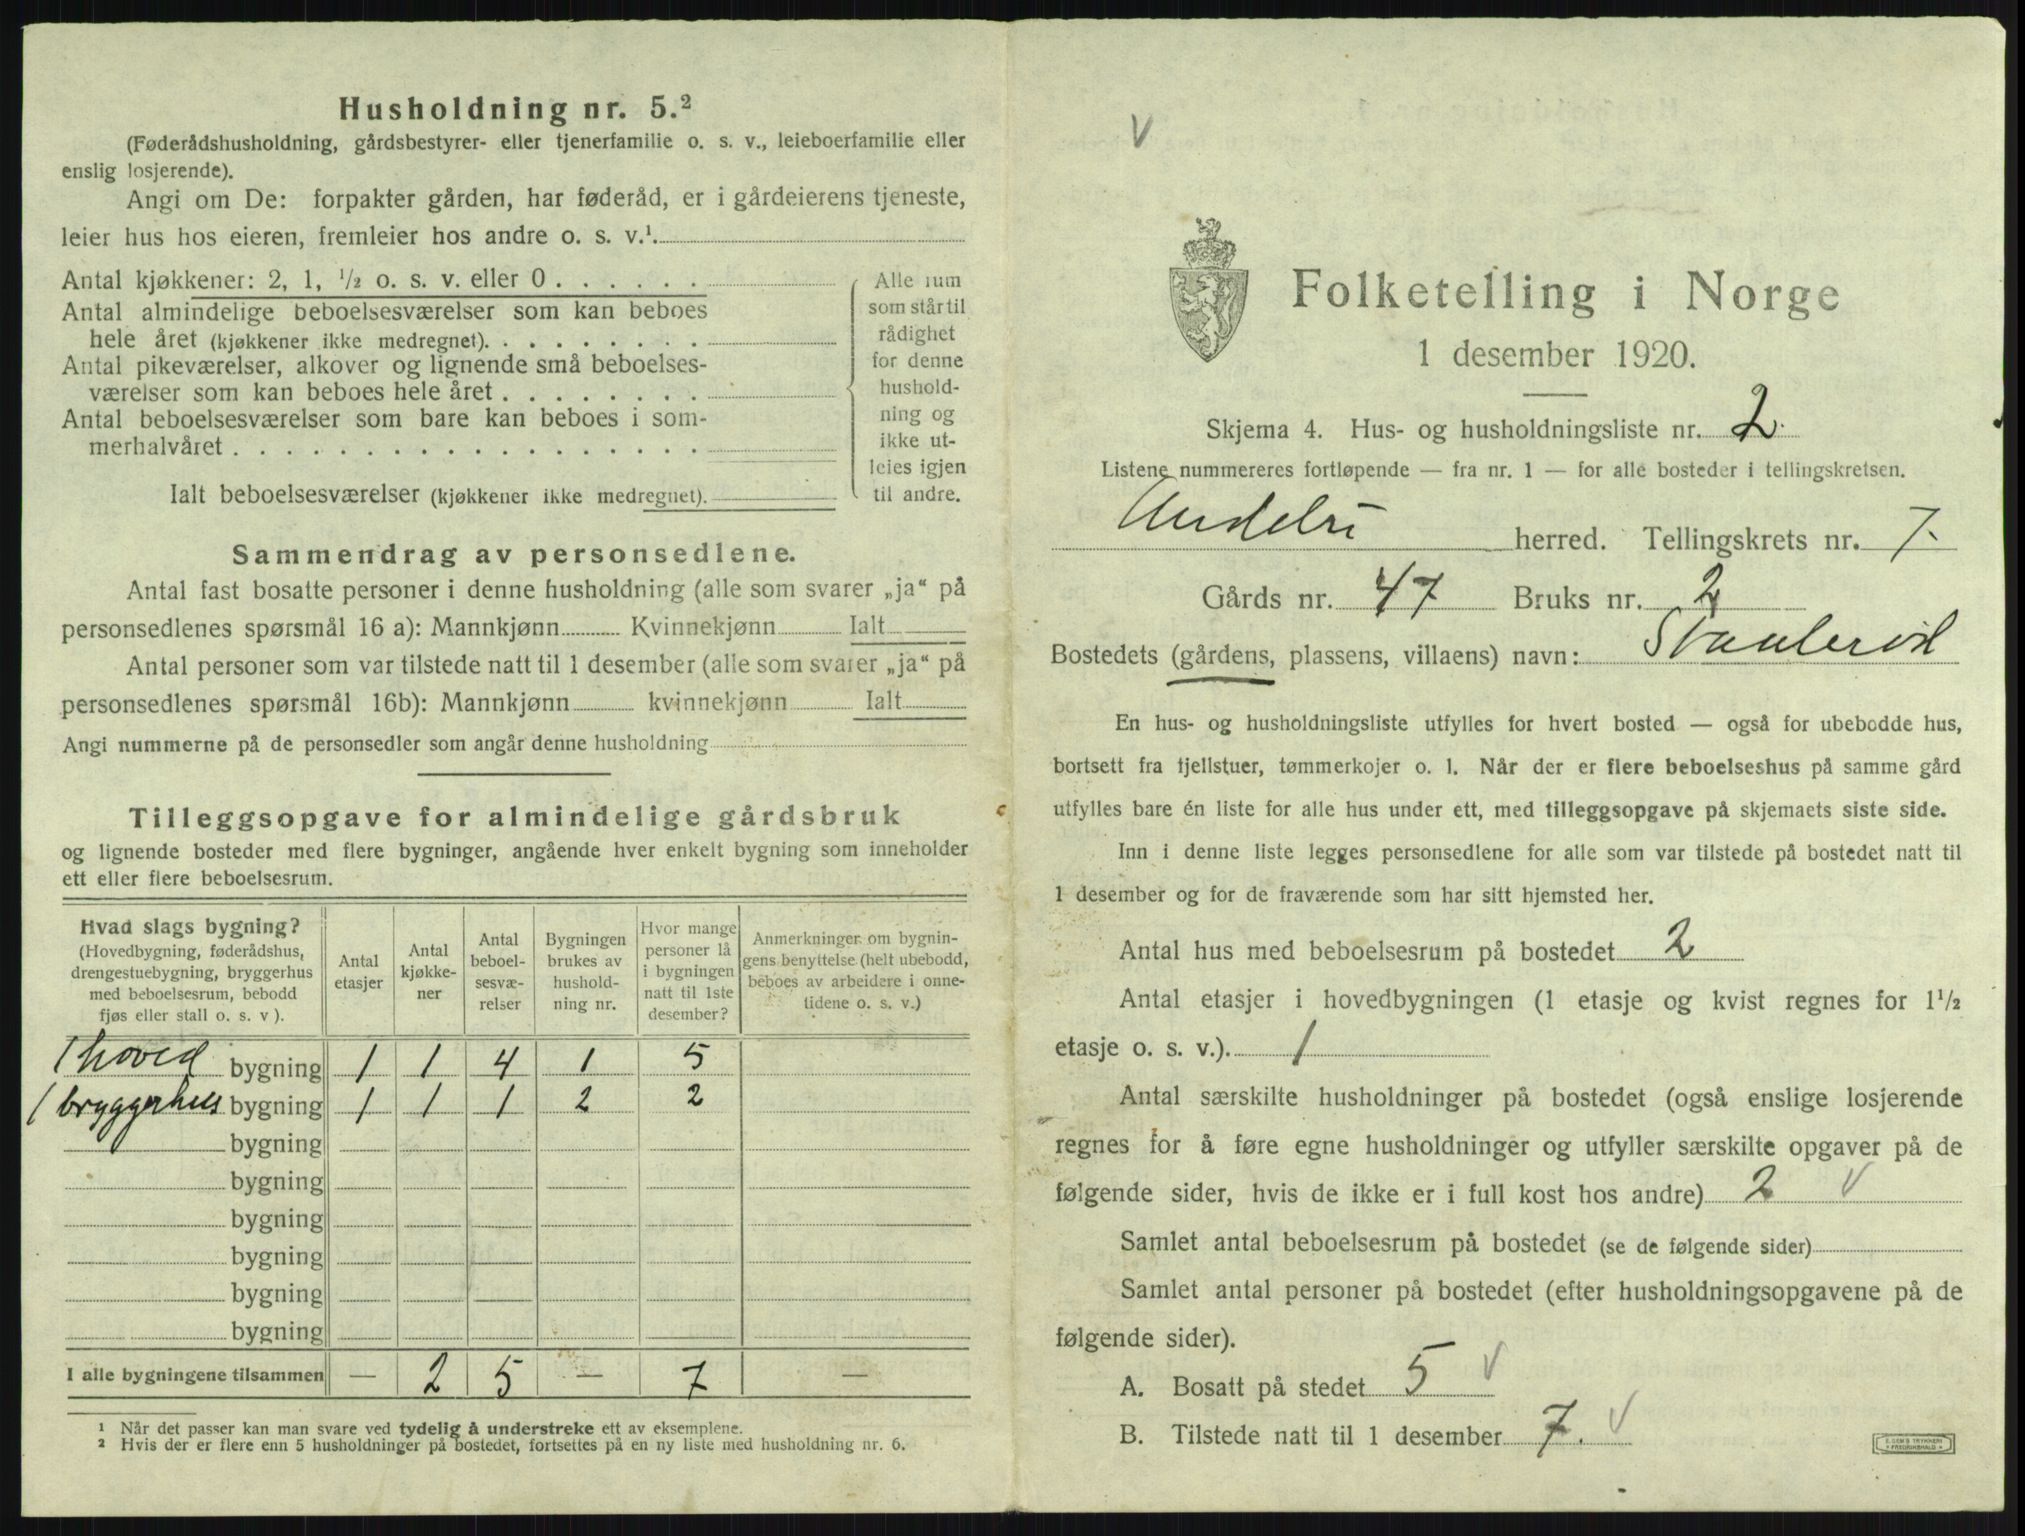 Husholdning nr. 5.²
(Føderådshusholdning, gårdsbestyrer- eller tjenerfamilie o. s. v., leieboerfamilie eller
enslig losjerende).
Angi om De: forpakter gården, har føderåd, er i gårdeierens tjeneste,
leier hus hos eieren, fremleier hos andre o. s. v.¹
Antal kjøkkener: 2, 1, ½ o. s. v. eller 0 . . . . . .
Antal almindelige beboelsesværelser som kan beboes
hele året (kjøkkener ikke medregnet). . . . . . . . .
Antal pikeværelser, alkover og lignende små beboelses-
værelser som kan beboes hele året . . . . . . . .
Antal beboelsesværelser som bare kan beboes i som-
merhalvåret . . . . . . . . . . . . . . . . . .
Ialt beboelsesværelser (kjøkkener ikke medregnet).
Alle rum
som står til
rådighet
for denne
hushold-
ning og
ikke ut-
leies igjen
til andre.
Sammendrag av personsedlene.
Antal fast bosatte personer i denne husholdning (alle som svarer „ja“ på
personsedlenes spørsmål 16 a): Mannkjønn Kvinnekjønn Ialt
Antal personer som var tilstede natt til 1 desember (alle som svarer „ja“ på
personsedlenes spørsmål 16b): Mannkjønn kvinnekjønn Ialt
Angi nummerne på de personsedler som angår denne husholdning
Tilleggsopgave for almindelige gårdsbruk
og lignende bosteder med flere bygninger, angående hver enkelt bygning som inneholder
ett eller flere beboelsesrum.
Hvad slags bygning?
(Hovedbygning, føderådshus,
drengestuebygning, bryggerhus
med beboelsesrum, bebodd
fjøs eller stall o. s. v ).
Antal
etasjer
Antal
kjøkke-
ner
Antal
beboel-
sesvæ-
relser
Bygningen
brukes av
hushold-
ning nr.
Hvor mange
personer lå
i bygningen
natt til 1ste
desember?
Anmerkninger om bygnin-
gens benyttelse (helt ubebodd,
beboes av arbeidere i onne-
tidene o. s. v.)
1 hoved bygning 1 1 4 1 5
1 bryggerhus bygning 1 1 1 2 2
bygning
bygning
bygning
bygning
bygning
bygning
I alle bygningene tilsammen — 2 5 — 7 —
¹ Når det passer kan man svare ved tydelig å understreke ett av eksemplene.
² Hvis der er flere enn 5 husholdninger på bostedet, fortsettes på en ny liste med husholdning nr. 6.
V
Folketelling i Norge
1 desember 1920.
Skjema 4. Hus- og husholdningsliste nr. 2.
Listene nummereres fortløpende — fra nr. 1 — for alle bosteder i tellingskretsen.
herred. Tellingskrets nr. 7.
Gårds nr. 47 Bruks nr. 2
Bostedets (gårdens, plassens, villaens) navn:
En hus- og husholdningsliste utfylles for hvert bosted — også for ubebodde hus,
bortsett fra fjellstuer, tømmerkojer o. l. Når der er flere beboelseshus på samme gård
utfylles bare én liste for alle hus under ett, med tilleggsopgave på skjemaets siste side.
Inn i denne liste legges personsedlene for alle som var tilstede på bostedet natt til
1 desember og for de fraværende som har sitt hjemsted her.
Antal hus med beboelsesrum på bostedet 2
Antal etasjer i hovedbygningen (1 etasje og kvist regnes for 1½
etasje o. s. v.). 1
Antal særskilte husholdninger på bostedet (også enslige losjerende
regnes for å føre egne husholdninger og utfyller særskilte opgaver på de
følgende sider, hvis de ikke er i full kost hos andre) 2 V
Samlet antal beboelsesrum på bostedet (se de følgende sider)
Samlet antal personer på bostedet (efter husholdningsopgavene på de
følgende sider).
A. Bosatt på stedet 5 V
B. Tilstede natt til 1 desember 7. V